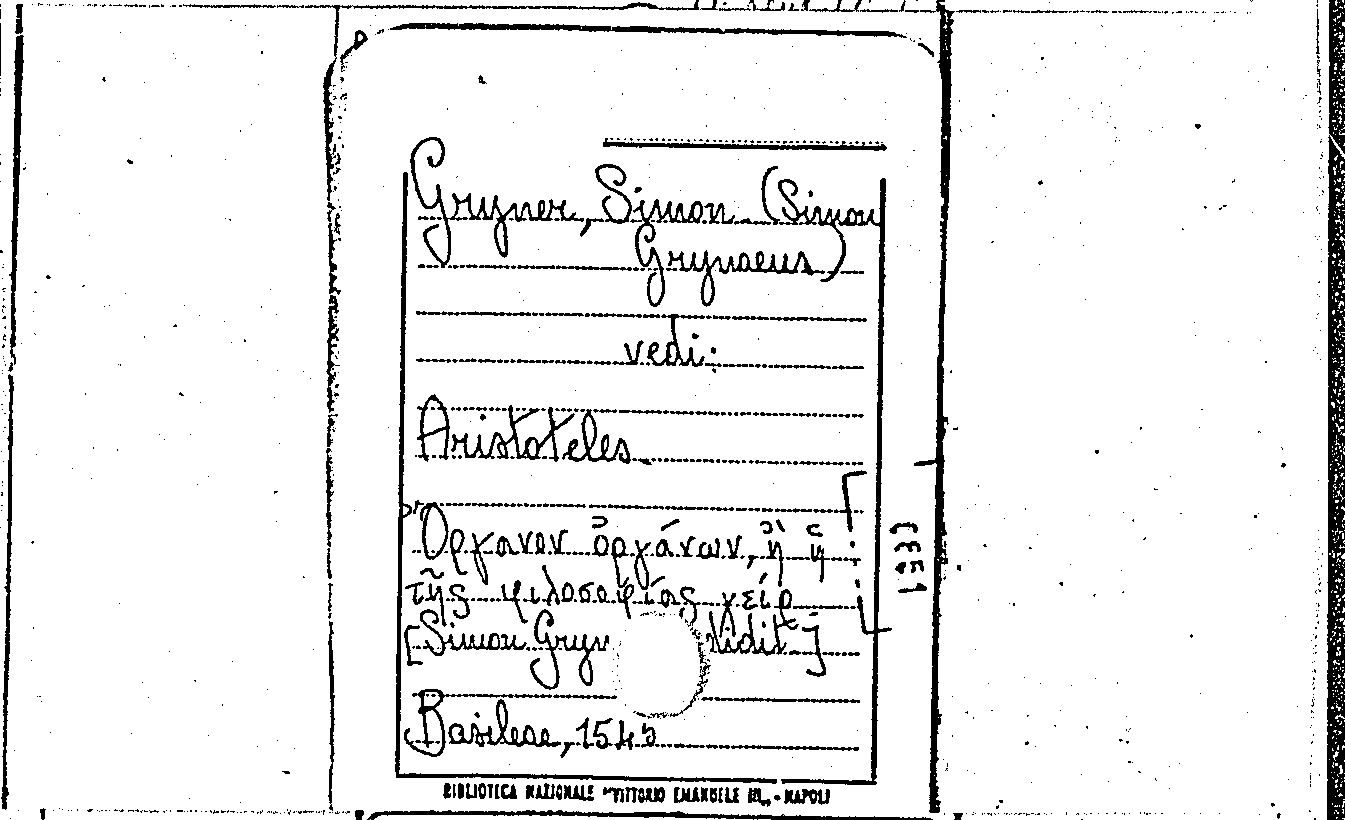 Gryner, Simon (Simon
Grynaeus)
vedi:
Aristoteles
Ὄργανον ὀργάνων, ἢ ἡ
τῆς φιλοσοφίας χείρ
[Simon Gryn edidit]
Basileae, 1545
BIBLIOTECA NAZIONALE "VITTORIO EMANUELE III" - NAPOLI